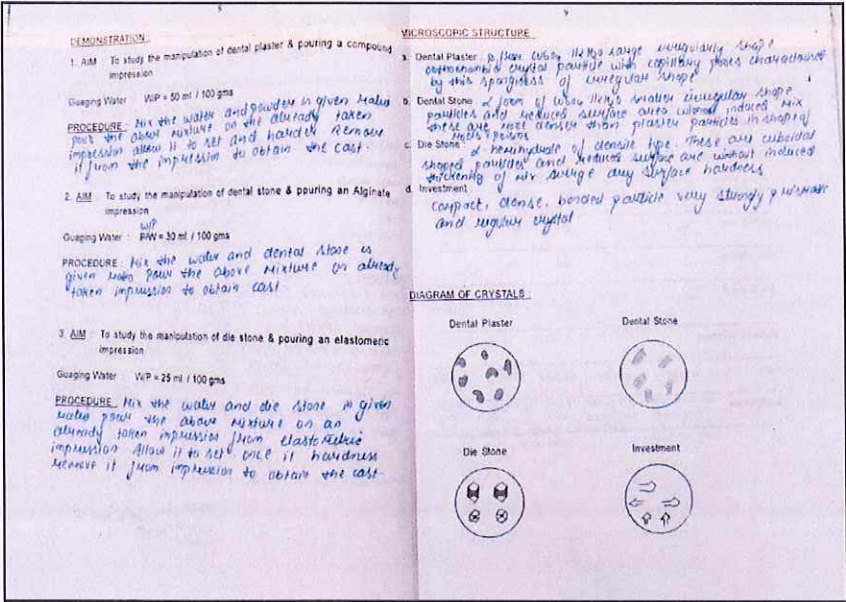 DEMONSTRATION :
1. AIM : To study the manipulation of dental plaster & pouring a compound
impression
Guaging Water : W/P = 50 ml / 100 gms
PROCEDURE : Mix the water and powder in given ratio
pour the above mixture on the already taken
impression allow it to set and harder Remove
it from the impression to obtain the cast.
2. AIM : To study the manipulation of dental stone & pouring an Alginate
impression
W/P
Guaging Water : P/W = 30 ml / 100 gms
PROCEDURE : Mix the water and dental stone is
given ratio pour the above mixture on already
taken impression to obtain cast
3. AIM : To study the manipulation of die stone & pouring an elastomeric
impression
Guaging Water : W/P = 25 ml / 100 gms
PROCEDURE : Mix the water and die stone in given
ratio pour the above mixture on an
already taken impression from elastomeric
impression Allow it to set once it hardness
remove it from impression to obtain the cast
MICROSCOPIC STRUCTURE
a. Dental Plaster : large irregularly shape
crystal particle with capillary pores characterised
by this sponginess of irregular shape
b. Dental Stone : smaller irregular shape
particles and reduced surface area mix
these are more denser than plaster particles in shape of
c. Die Stone : hemihydrate of densite type. These are cuboidal
shaped particles and reduced surface are without induced
thickening of mix surface hardness
d. Investment :
compact, dense, bonded particle very strongly prismatic
and regular crystal
DIAGRAM OF CRYSTALS :
Dental Plaster Dental Stone
Die Stone Investment